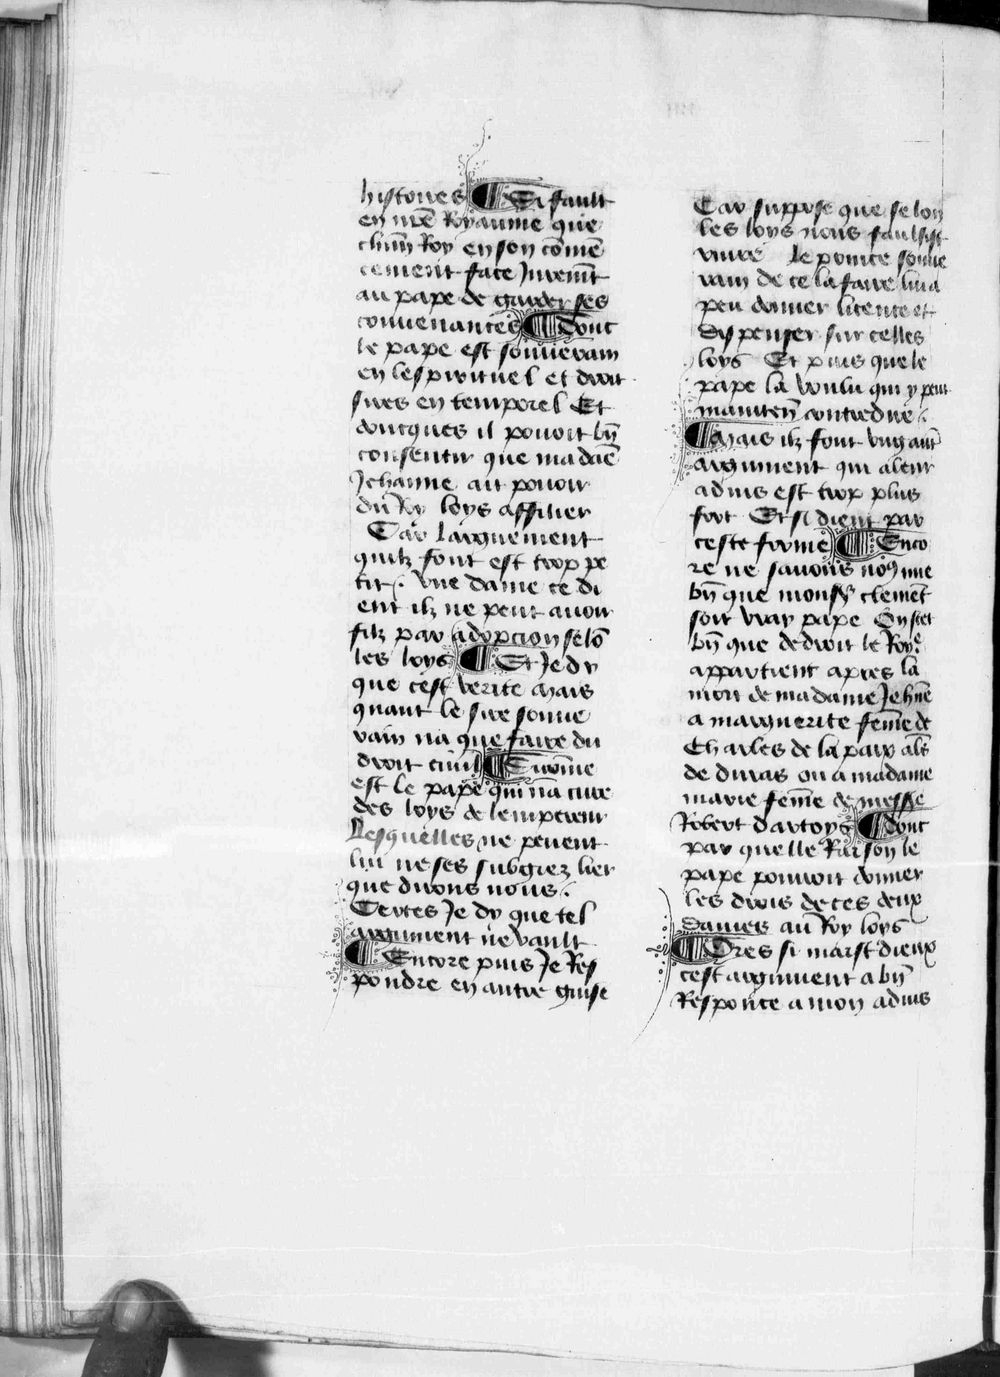 histoires ¶ Si fault
en mē Royaume que
chūn Roy en son cōmē
cement face Jurem̄t
au pape de garder ses
conuenances ¶ Dont
le pape est souuerain
en lespirituel et droit
sires en temporel Et
doncques il pouoit bn̄
consentir que ma daē
Jehanne ait pouoir
du Roy loys affilier
Car larguement
quilz font est trop pe
tit /. Vne dame ce di
ent ilz ne peut auoir
filz par adopcion selō
les loys ¶ Et Je dy
que cest verite Mais
quant le sire souue
rain na que faire du
droit ciuil ¶ Cōme
est le pape qui na cure
des loys de lempereur
Lesquelles ne peuent
lui ne ses subgiez lier
que dirons nous /.
Certes Je dy que tel
argument ne vault
¶ Encore puis Je Res
pondre en autre guise
Car suppose que selon
les loys nous faulsist
viure le prince souue
rain de ce la faire lui a
peu donner licence et
dispenser sur celles
loys Et puis que le
pape la voulu qui y peut
mainten̄ contredire /.
¶ Mais ilz font vng aut̄
argument qui a leur
aduis est trop plus
fort Et si dient par
ceste forme ¶ Enco
re ne sauons nous mie
bn̄ que mons̄ clement
soit vray pape
bn̄ que de droit le Roye
appartient apres la
mort de madame Jehn̄e
a marguerite fem̄e de
Charles de la paix als̄
de duras ou a madame
marie fem̄e de messe
Robert dartoys ¶ Dont
par quelle Raison le
pape pourroit donner
les drois de ces deux
dames au Roy loys
¶ Ores si marst dieux
cest argument a bn̄
Responce a mon aduis